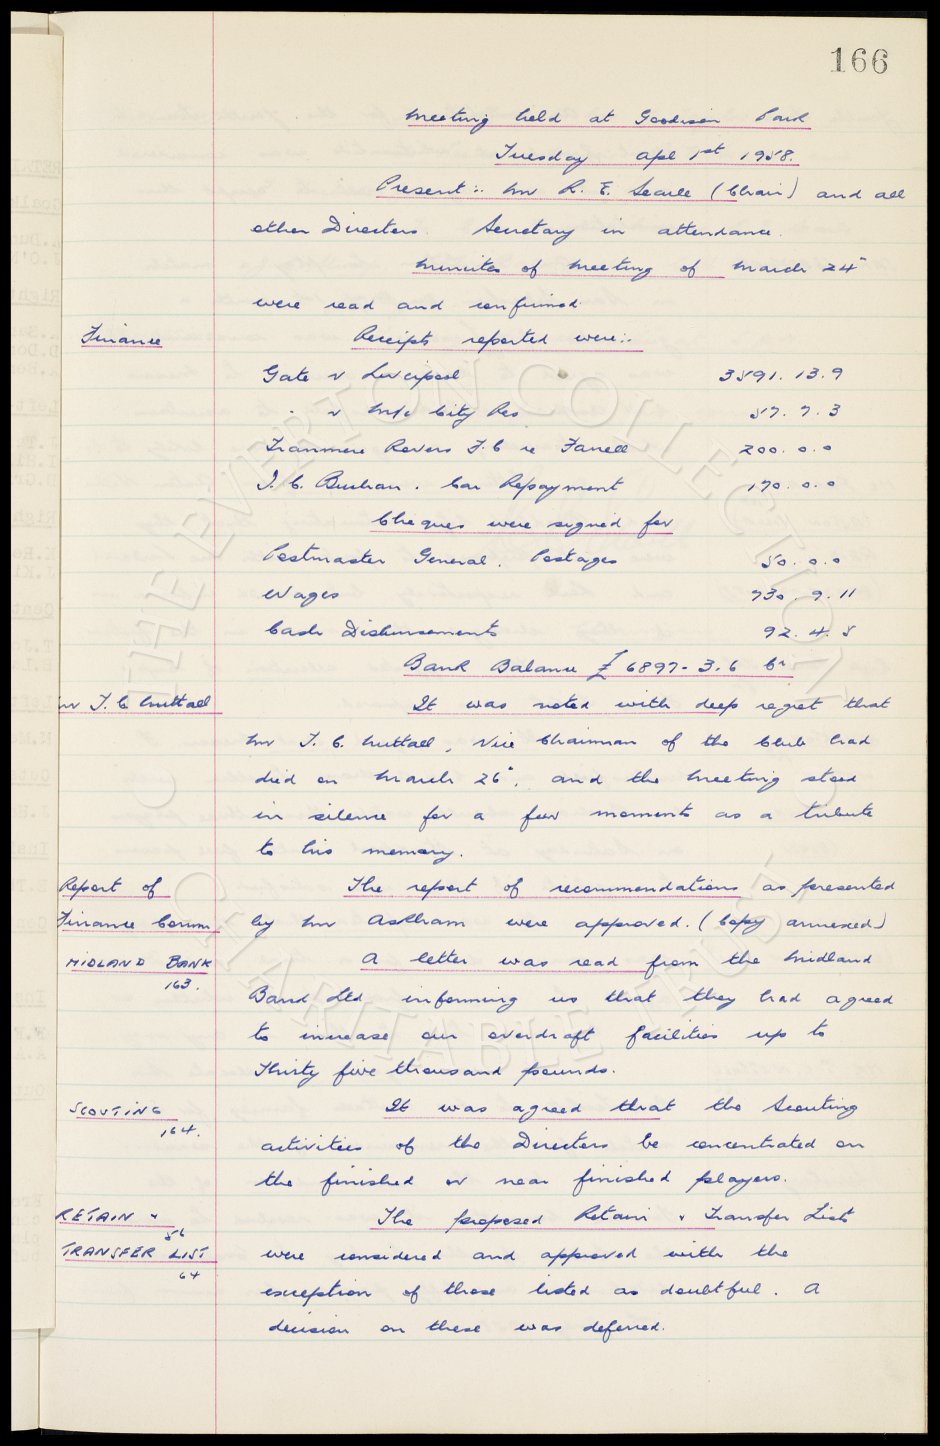 166
Meeting held at Goodison Park
Tuesday Apl 1st 1958.
Present:- Mr R. E. Searle (Chair) and all
other Directors. Secretary in attendance.
Minutes of Meeting of March 24"
were read and confirmed.
Finance Receipts reported were:-
Gate v Liverpool 3591. 13. 9
" v M/c City Res 57. 7. 3
Tranmere Rovers F.C re Farrell 200. 0. 0
I. C. Buchan. Car Repayment 170. 0. 0
Cheques were signed for
Postmaster General. Postages 50. 0. 0
Wages 730. 7. 11
Cash Disbursements 92. 4. 5
Bank Balance £6897-3.6 Cr
Mr T. C. Nuttall It was noted with deep regret that
Mr T. C. Nuttall, Vice Chairman of the Club had
died on March 26", and the Meeting stood
in silence for a few moments as a tribute
to his memory.
Report of The report of recommendations as presented
Finance Comm. by Mr Askham were approved. (Copy annexed)
MIDLAND BANK A letter was read from the Midland
163.
Band Ltd informing us that they had agreed
to increase our overdraft facilities up to
Thirty five thousand pounds.
SCOUTING It was agreed that the Scouting
164.
activities of the Directors be concentrated on
the finished or near finished players.
RETAIN & The proposed Retain & Transfer Lists
56
TRANSFER LIST were considered and approved with the
64
exception of those listed as doubtful. A
decision on these was deferred.
© THE EVERTON COLLECTION
CHARITABLE TRUST